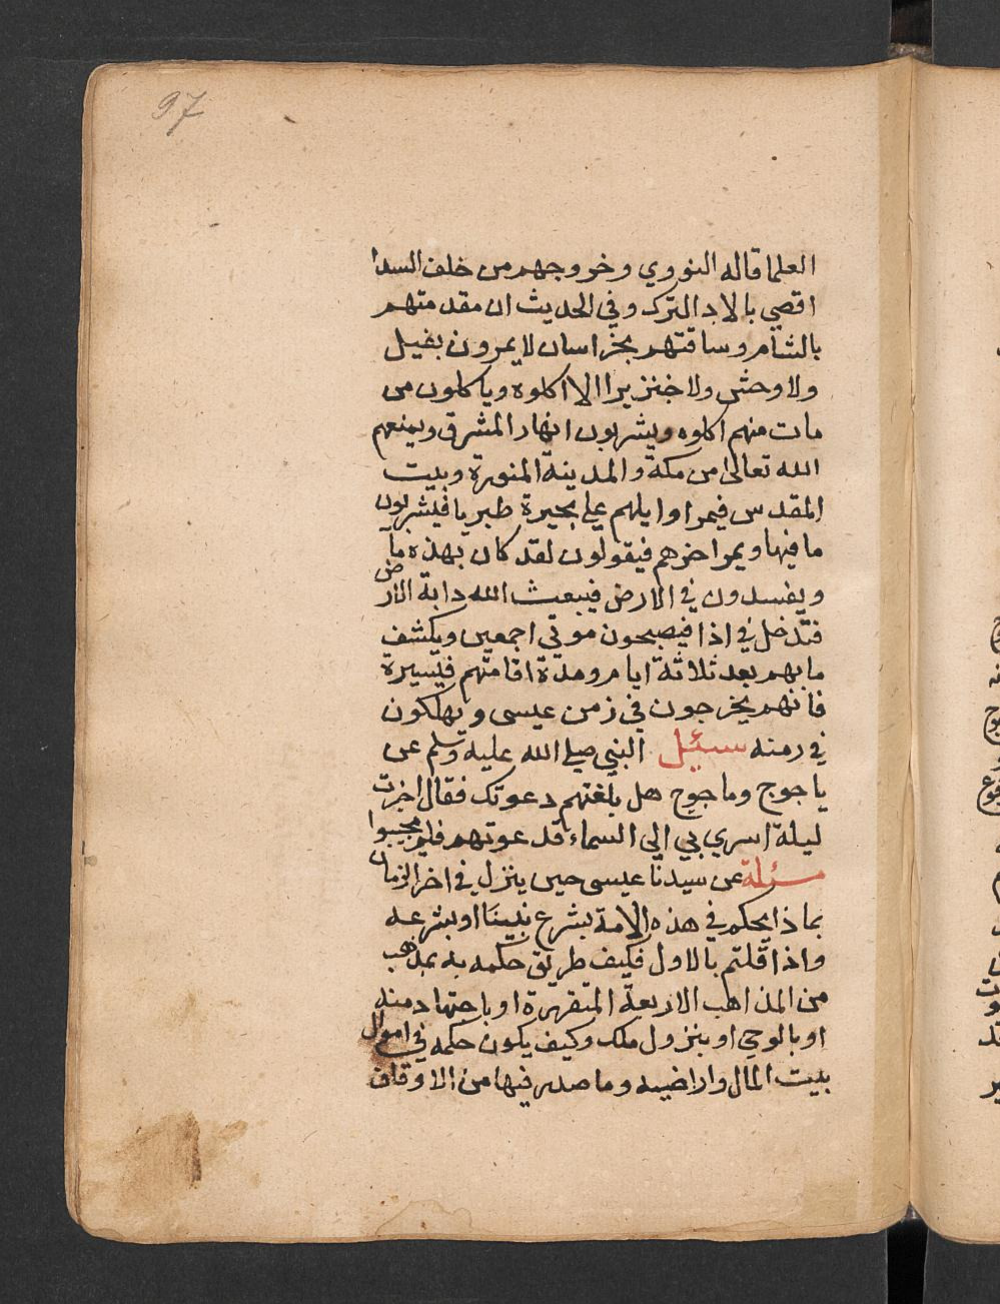 97
العلما قاله النووي وخروجهم من خلف السدا
اقصي بالاد الترك وفي الحديث ان مقدمتهم
بالشام وساقتهم بخراسان لا يمرون بفيل
ولا وحش ولا خنزيرا الا اكلوه وياكلون من
مات منهم اكلوه ويشربون انهار المشرق ويمنعهم
الله تعالى من مكة والمدينة المنورة وبيت
المقدس فيمر اوايلهم علي بحيرة طبريا فيشربون
ما فيها ويمر اخرهم فيقولون لقد كان بهذه مآ
ويفسدون في الارض فيبعث الله دابة الارض
فتدخل في اذا فيصبحون موتي اجمعين ويكشف
ما بهم بعد ثلاثة ايام ومدة اقامتهم فيسيرة
فانهم يخرجون في زمن عيسى ويهلكون
في زمنه سيئل النبي صلي الله عليه وسلم عن
ياجوج وماجوج هل بلغتهم دعوتك فقال اجزت
ليلة اسري بي الي السماء فدعوتهم فلم يجيبوا
مسئلة عن سيدنا عيسى حين ينزل في اخر الزمان
بماذا يحكم في هذه الامة بشرع نبينا او بشرعه
واذا قلتم بالاول فكيف طريق حكمه به بمذهب
من المذاهب الاربعة المتقررة او باجتهاد منه
او بالوحي او بنزول ملك وكيف يكون حكمه في اموال
بيت المال واراضيه وما صدر فيها من الاوقاف